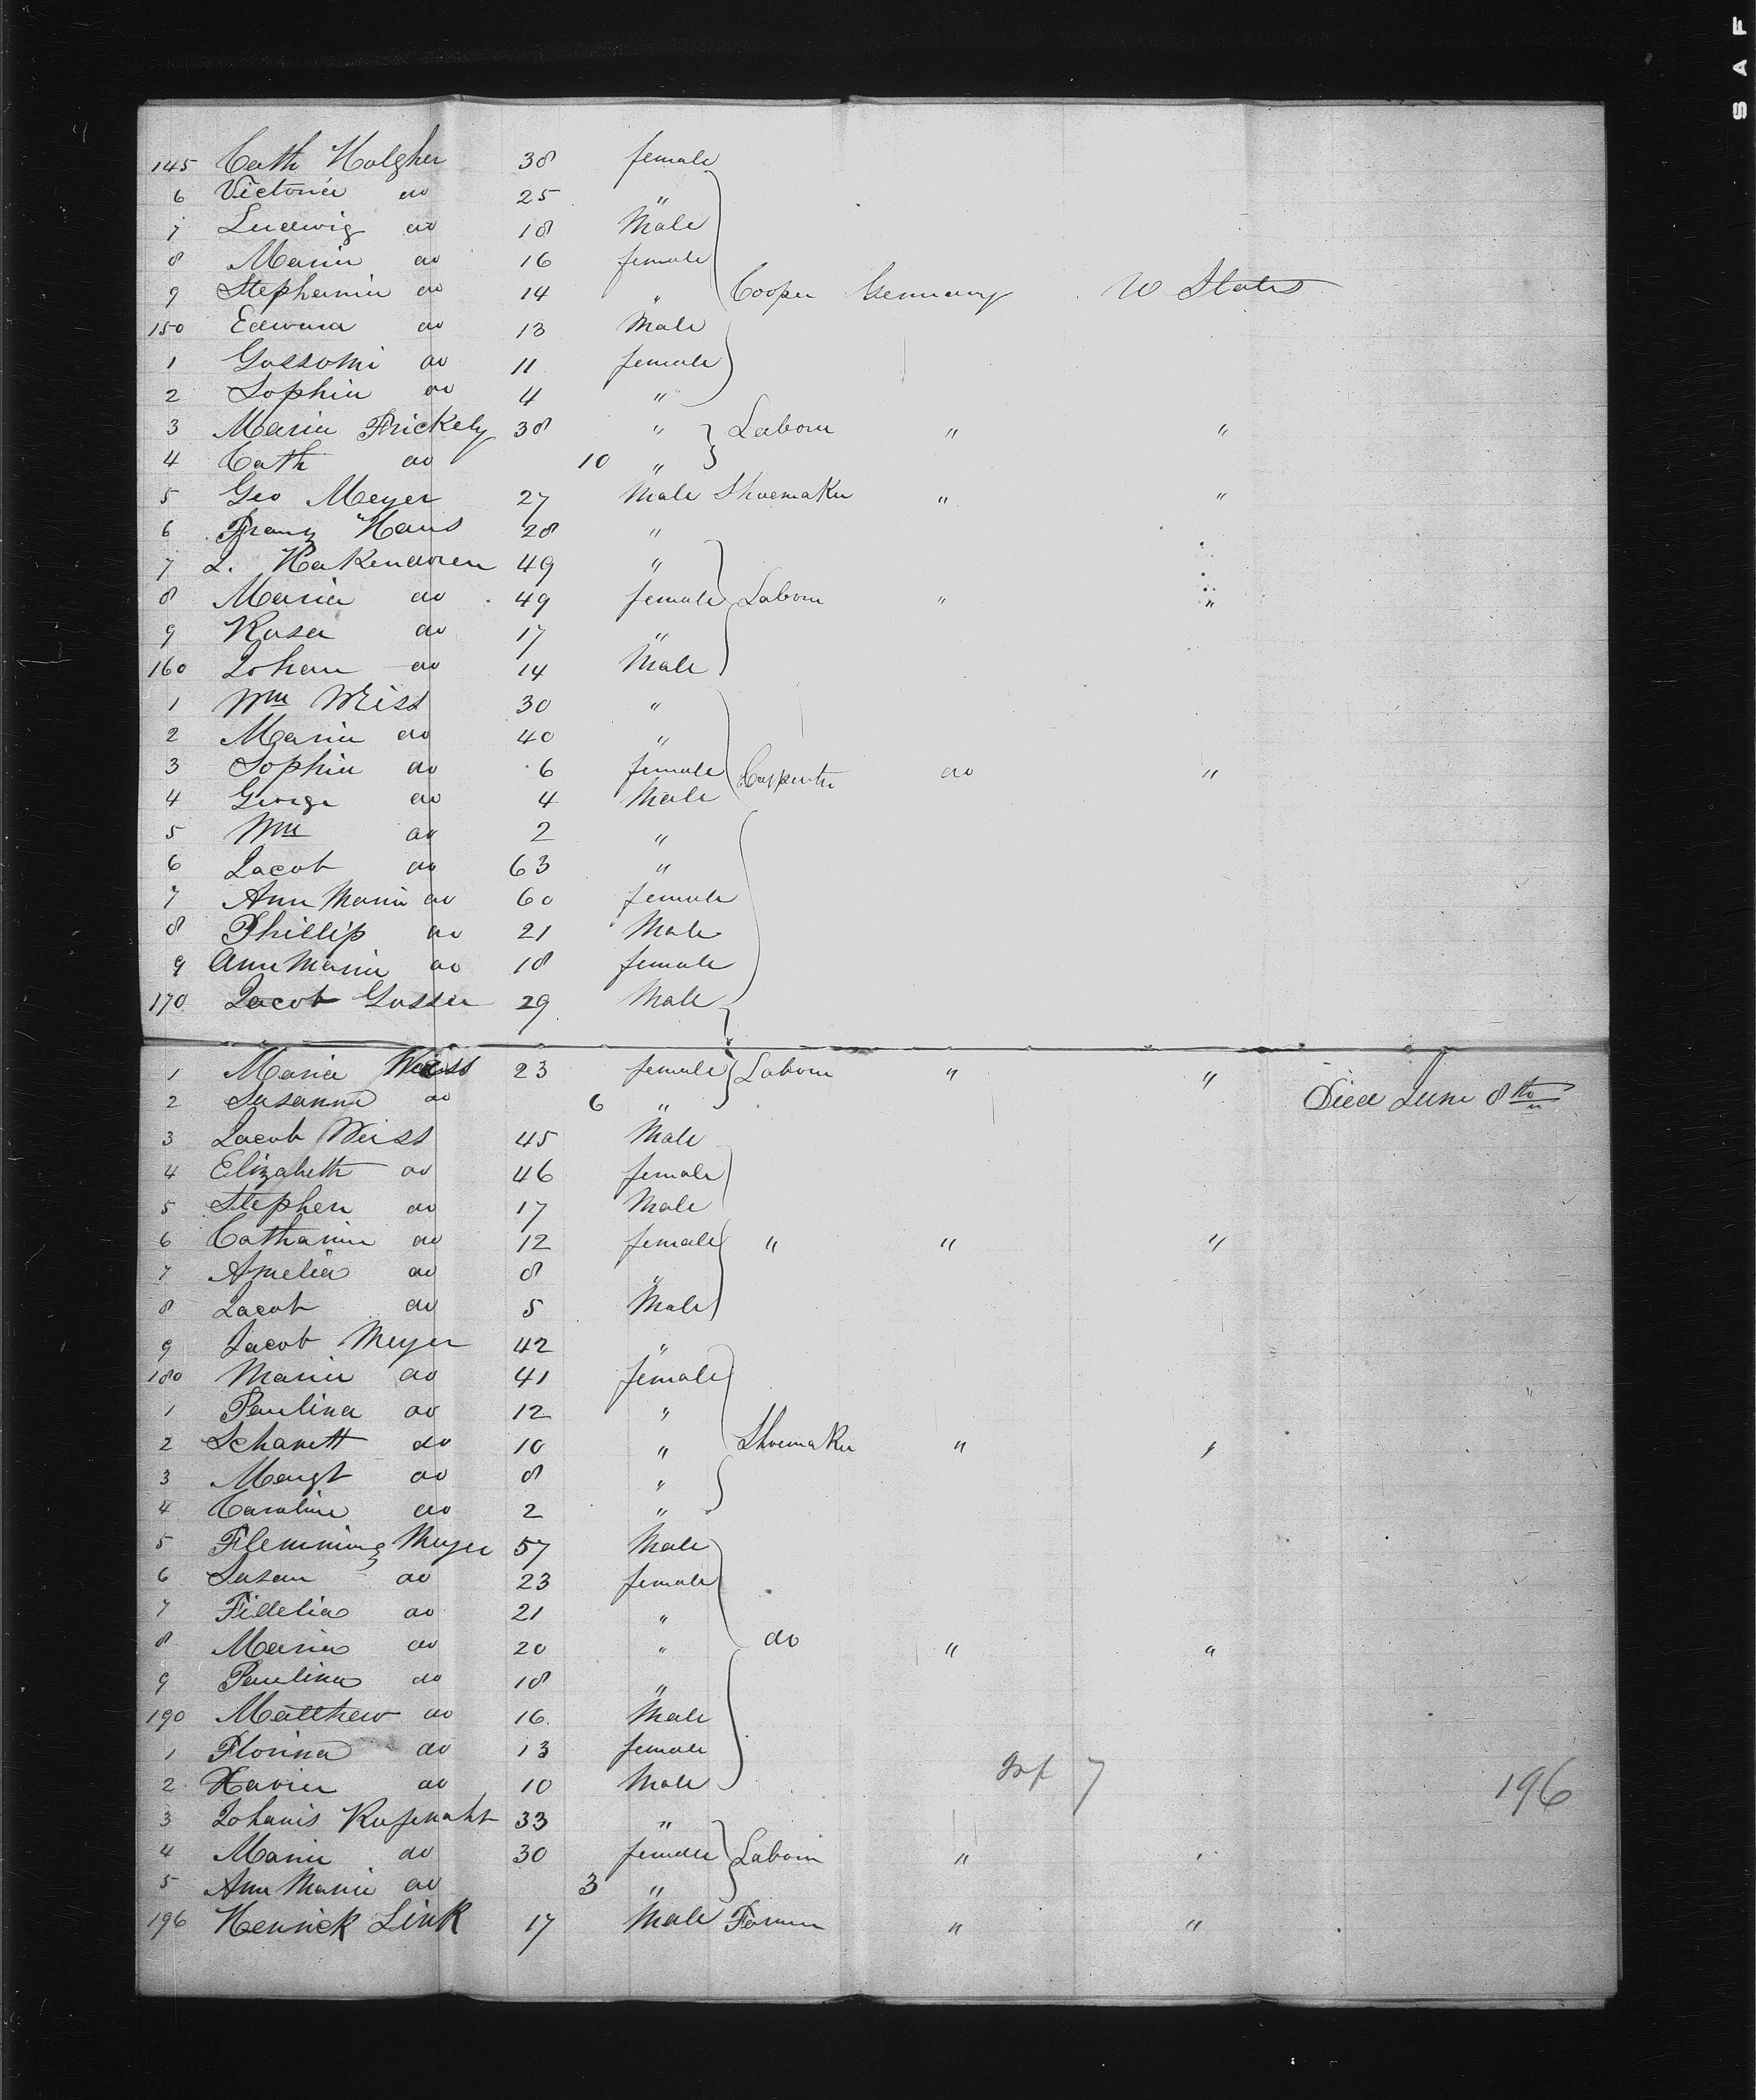 145 Cath Holgher 38 female
6 Victoria do 25 "
7 Ludwig do 18 Male
8 Maria do 16 female
9 Stephania do 14 " Cooper Germany U States
150 Edward do 13 Male
1 do 11 female
2 Sophia do 4 "
3 Maria Frickely 38 " Laborer " "
4 Cath do 10 "
5 Geo Meyer 27 Male Shoemaker " "
6 Franz Haus 28 "
7 49 "
8 Maria do 49 female Laborer " "
9 Rosa do 17 "
160 Johan do 14 Male
1 Wm Weiss 30 "
2 Maria do 40 "
3 Sophia do 6 female Carpenter do "
4 George do 4 Male
5 Wm do 2 "
6 Jacob do 63 "
7 Ann Maria do 60 female
8 Phillip do 21 Male
9 Ann Maria do 18 female
170 Jacob Gosser 29 Male
1 Maria Weiss 23 female Laborer " "
2 Susanna do 6 " Died June 8th
3 Jacob Weiss 45 Male
4 Elizabeth do 46 female
5 Stephen do 17 Male
6 Catharina do 12 female " " "
7 Amelia do 8 "
8 Jacob do 5 Male
9 Jacob Meyer 42 "
180 Maria do 41 female
1 Paulina do 12 "
2 Schanett do 10 " Shoemaker " "
3 Margt do 8 "
4 Caroline do 2 "
5 Flemming Meyer 57 Male
6 Susan do 23 female
7 Fidelia do 21 "
8 Maria do 20 " do " "
9 Paulina do 18 "
190 Matthew do 16 Male
1 Florina do 13 female
2 Xavier do 10 Male Inf 7 196
3 Johanis 33 "
4 Maria do 30 female Laborer " "
5 Ann Maria do 3 "
196 Henrick Link 17 Male Farmer " "
SAF